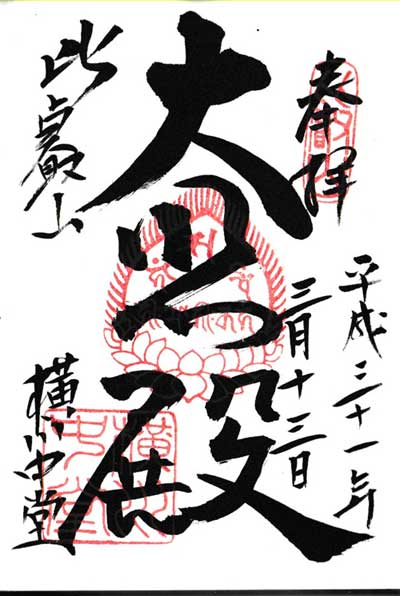 奉拝
平成三十一年
三月十三日
大悲殿
比叡山
横川中堂
横川中堂